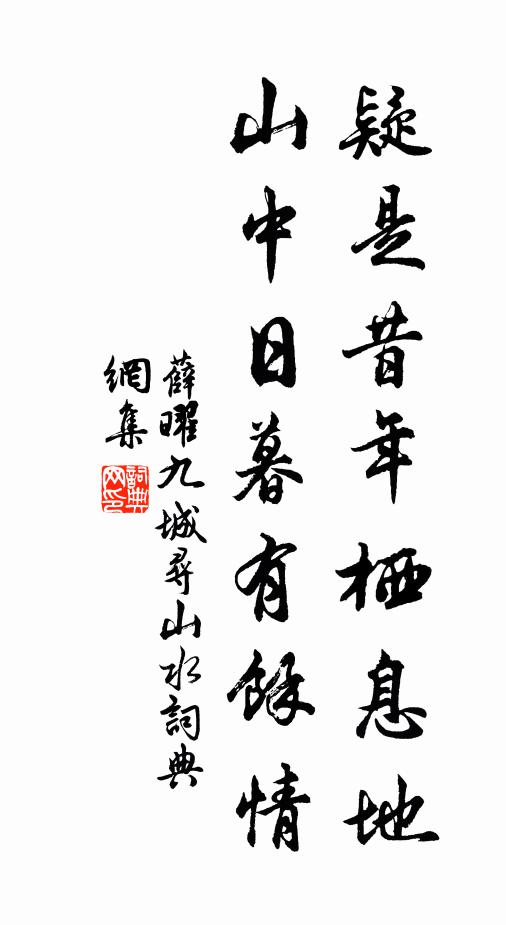 疑是昔年栖息地
山中日暮有餘情
薛曜九城尋山水詞典
網集
詞典網印